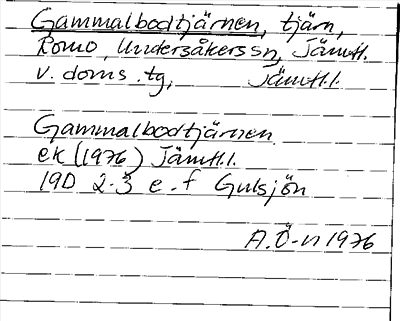 Gammalbodtjärnen, tjärn,
Romo, Undersåkers sn, Jämtl.
v. doms. tg, Jämtl. l.
Gammalbodtjärnen
ek (1976) Jämtl. l.
19D 2-3 e-f Gulsjön
A. Ö-n 1976